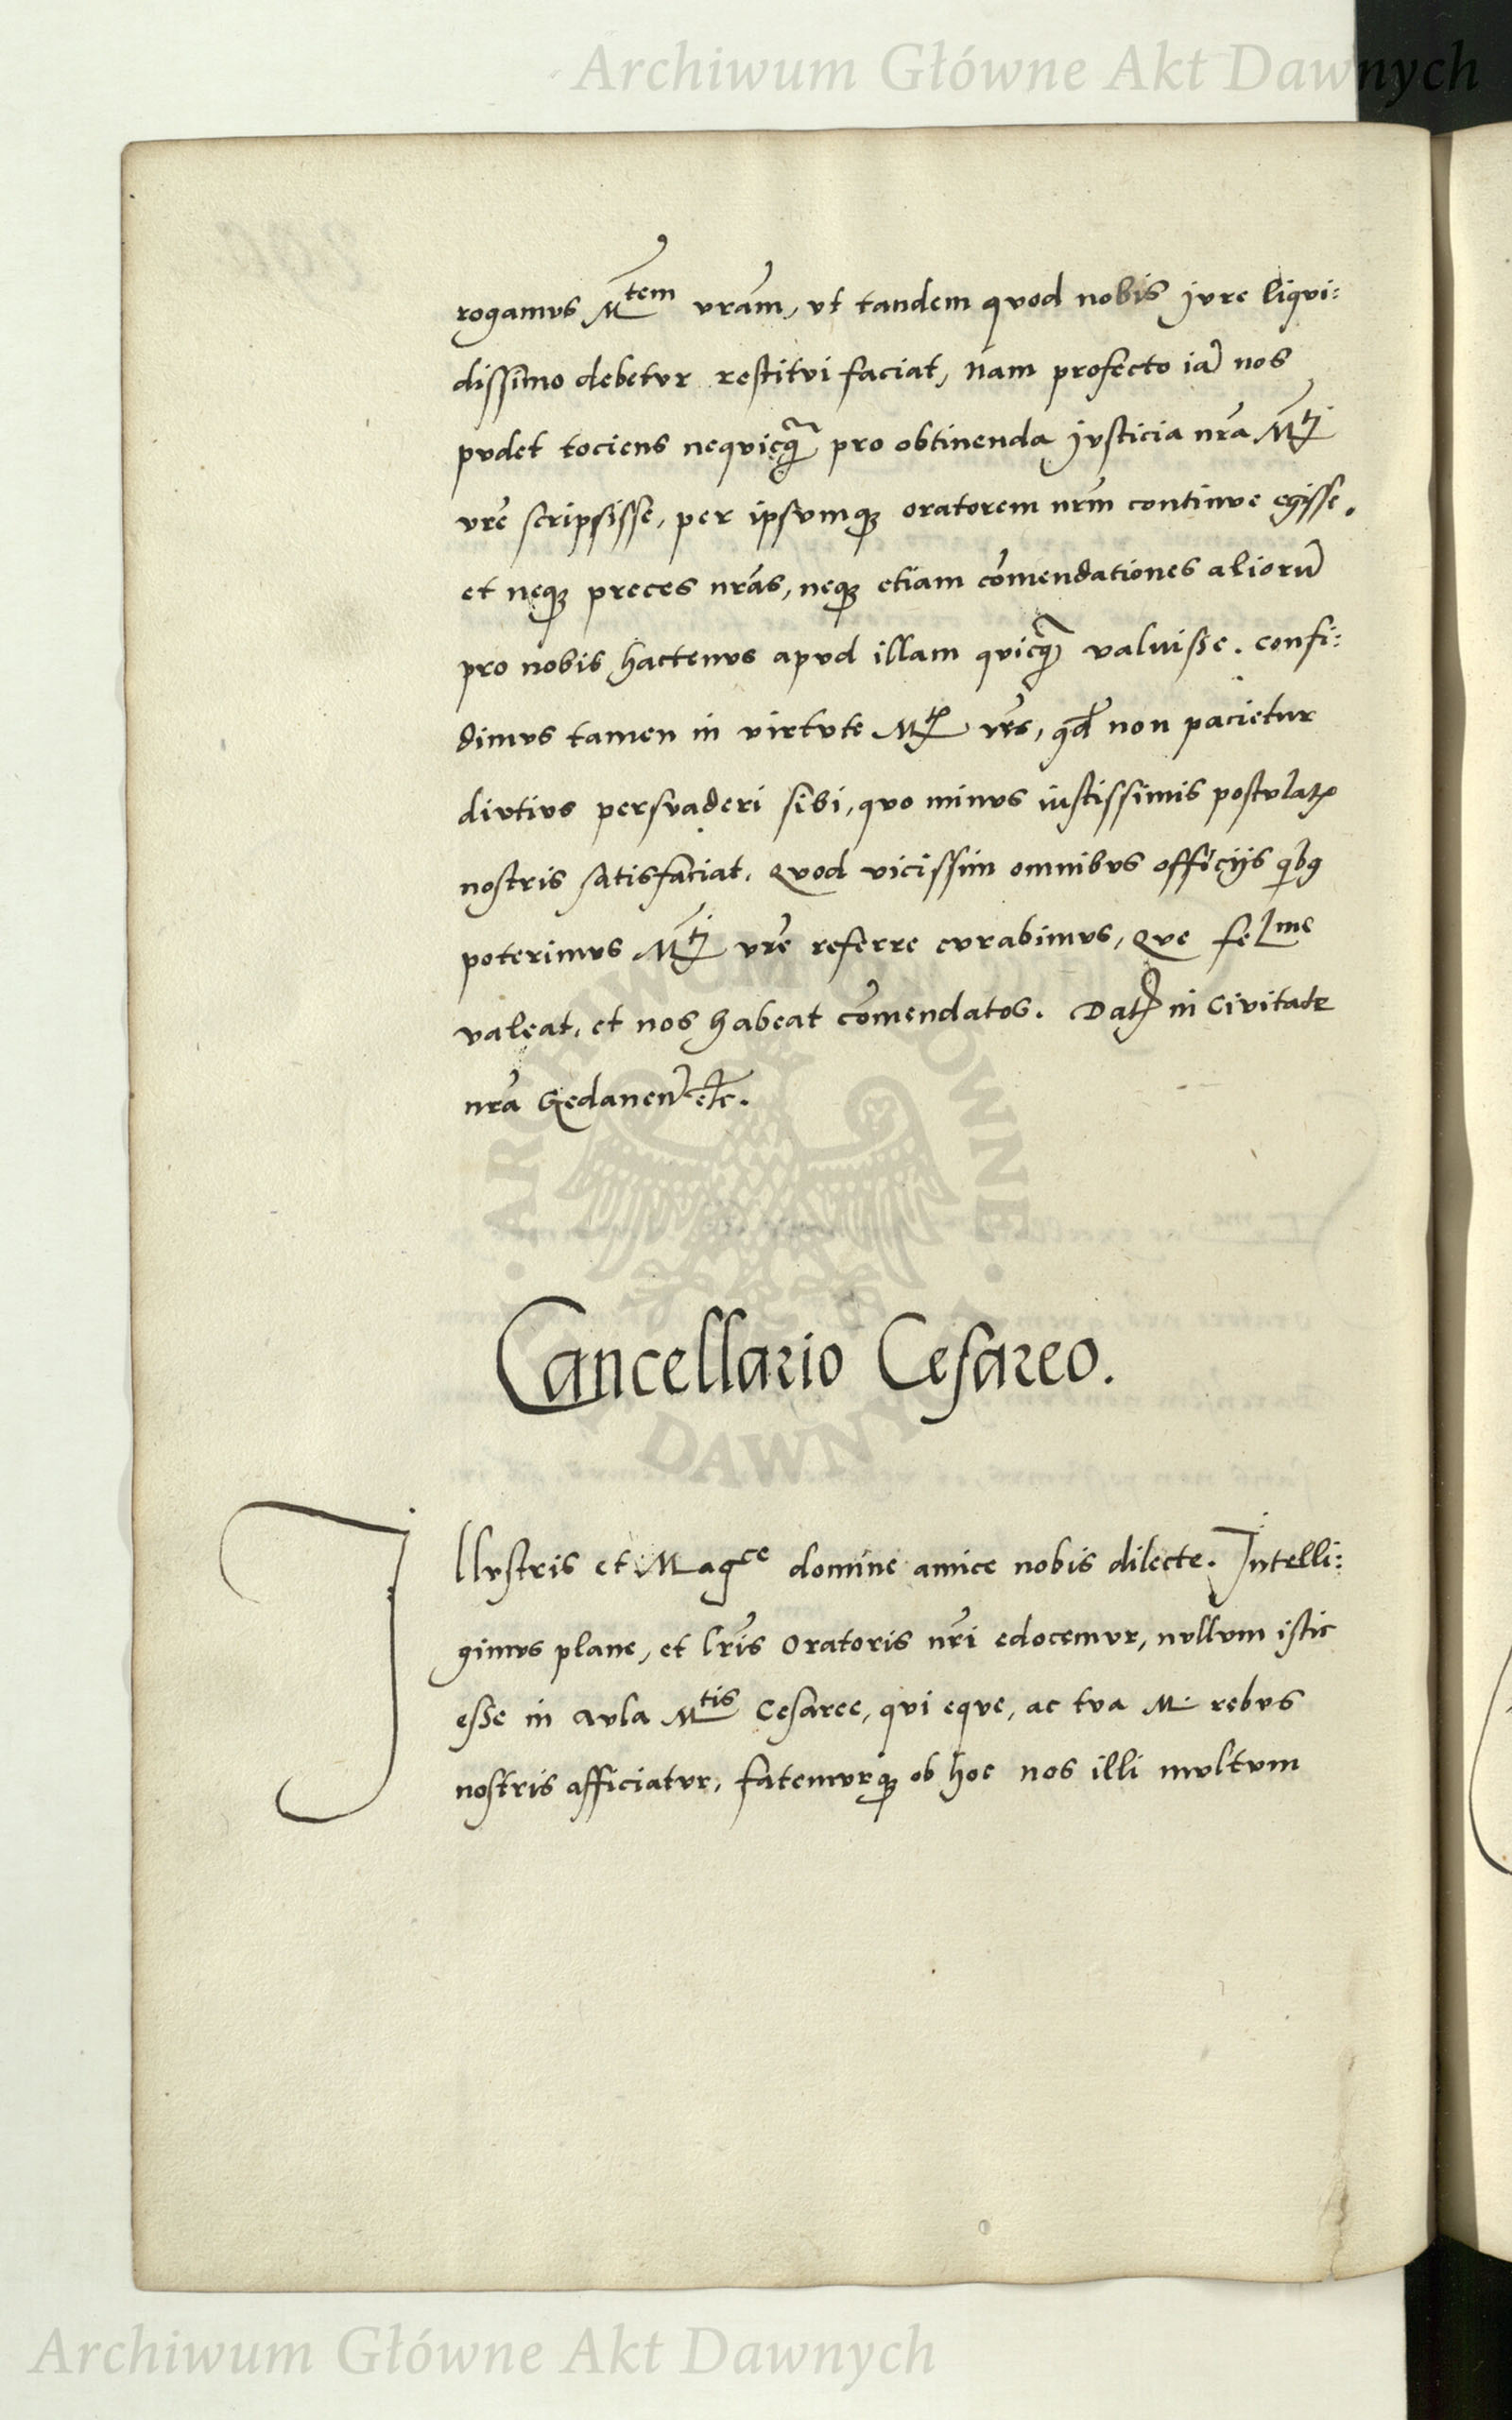 Archiwum Główne Akt Dawnych
rogamus Mtem vram, ut tandem quod nobis jure liqui:
dissimo debetur restitui faciat, Nam profecto iã nos
pudet tociens nequicq̃ pro obtinenda justicia nrã Mti
vrẽ scripsisse, per ipsumqꝫ oratorem nrm̃ continue egisse.
et neqꝫ preces nrãs, neqꝫ etiam com̃endationes aliorũ
pro nobis hactenus apud illam quicq̃ valuisse. confi:
dimus tamen in virtute Mtis vrẽ, qd̃ non pacietur
diutius persuaderi sibi, quo minus iustissimis postulatis
nostris satisfaciat. Quod vicissim omnibus officijs qibꝯ
poterimus Mti vrẽ referre curabimus, Que felme
valeat, et nos habeat com̃endatos. Datꝭ in Civitate
nrã Gedanen̄ etc.
ARCHIWUM GŁÓWNE AKT DAWNYCH
Cancellario Cesareo.
Illustris et Magce domine amice nobis dilecte. Intelli:
gimus plane, et lris̃ Oratoris nrĩ edocemur, nullum istic
esse in Aula Mtis Cesaree, qui eque, ac tua M. rebus
nostris afficiatur, fatemurqꝫ ob hoc nos illi multum
Archiwum Główne Akt Dawnych